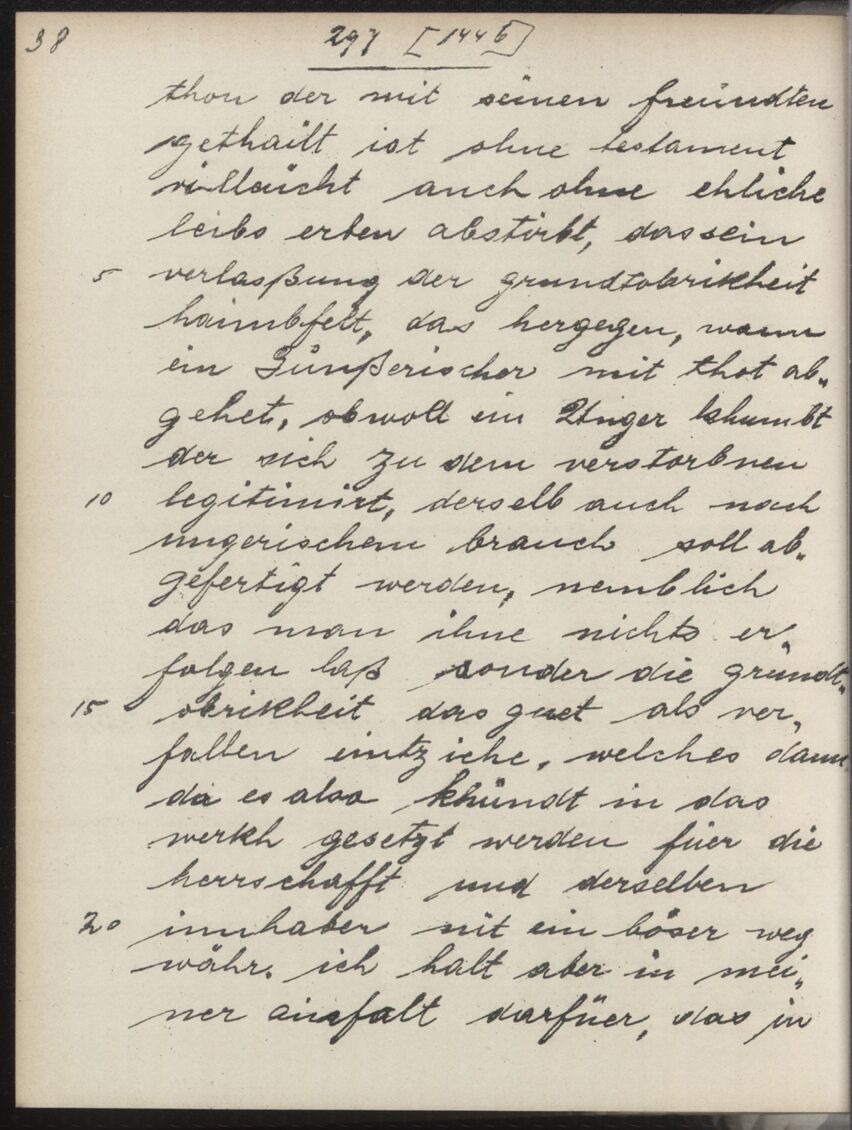 38 297 [1446]
thon der mit seinen freündten
gethailt ist ohne testament
villeücht auch ohne ehliche
leibs erben abstirbt, das sein
5 verlasßung der grundtobrikheit
haimbfelt, das hergegen, wann
ein Günßerischer mit thot ab„
gehet, obwoll ein Unger khumbt
der sich zu dem verstorbnen
10 legitimirt, derselb auch nach
ungerischem brauch soll ab„
gefertigt werden, nemblich
das man ihne nichts er„
folgen laß sonder die grundt„
15 obrikheit das guet als ver„
fallen eintziche, welches dann
da es also khündt in das
werkh gesetzt werden füer die
herrschafft und derselben
20 innhaber nit ein böser weg
währ. ich halt aber in mei„
ner ainfalt darfüer, das in